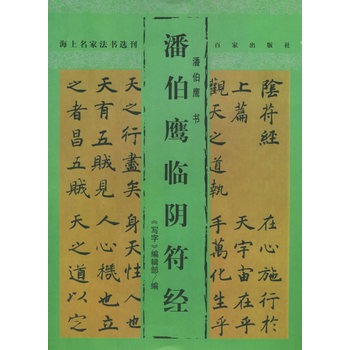 海上名家法书选刊
百家出版社
潘伯鹰书
潘伯鹰临阴符经
《写字》编辑部/编
陰符經
上篇
觀天之道執
天之行盡矣
天有五賊見
之者昌五賊
在心施行於
天宇宙在乎
手萬化生乎
身天性人也
人心機也立
天之道以定